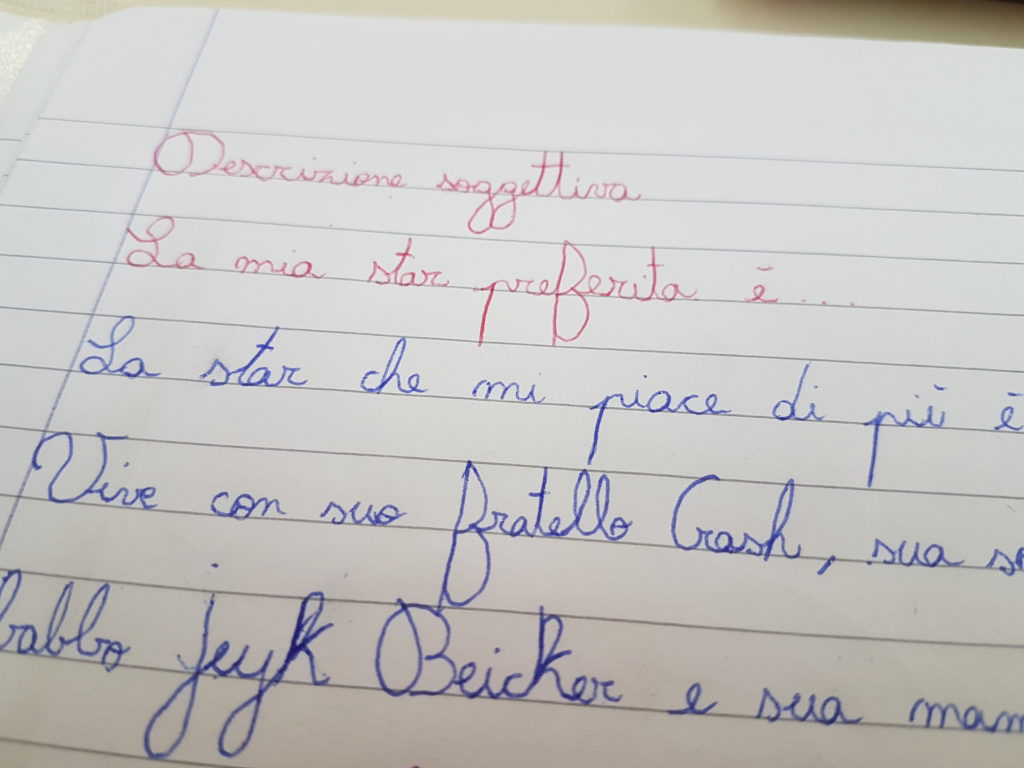 Descrizione soggettiva
La mia star preferita è...
La star che mi piace di più è
Vive con suo fratello Crash, sua
babbo Jeyk Beicker e sua